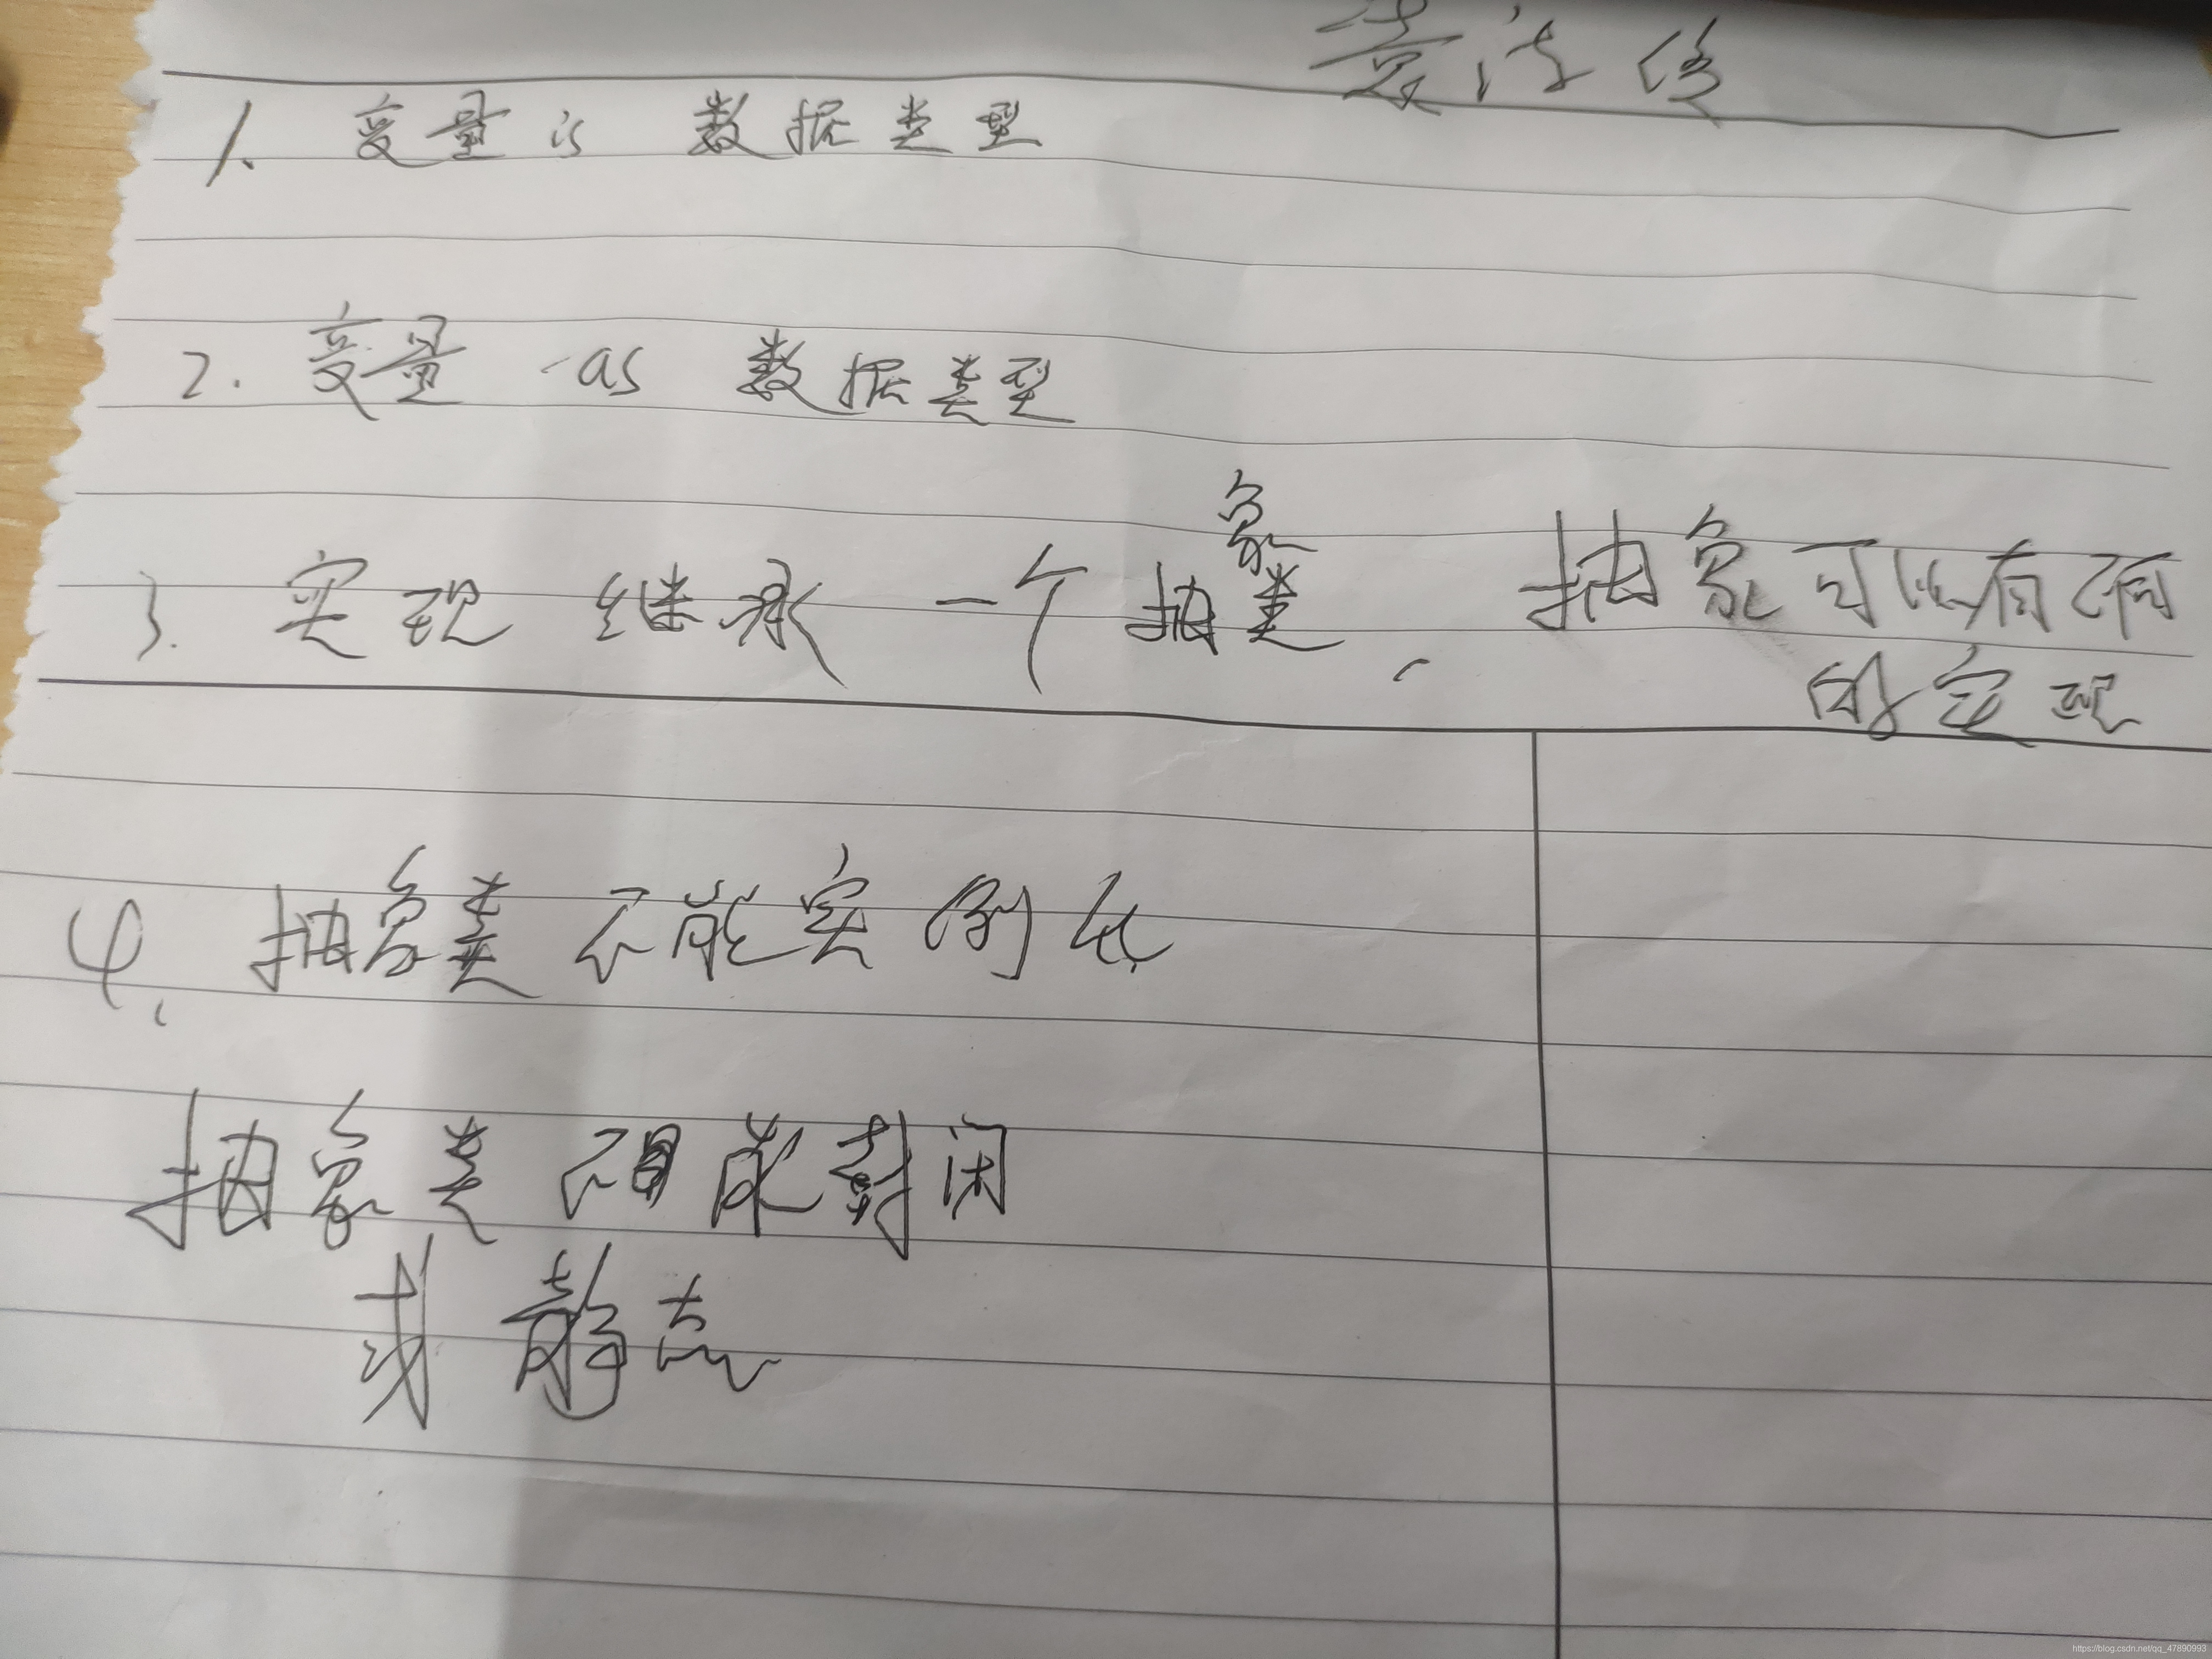 1. 变量 is 数据类型
2. 变量 as 数据类型
3. 实现 继承 一个 抽象类, 抽象可以有
的实现
4. 抽象类 不能实例化
抽象类 不能封闭
或 静态
https://blog.csdn.net/qq_47890993